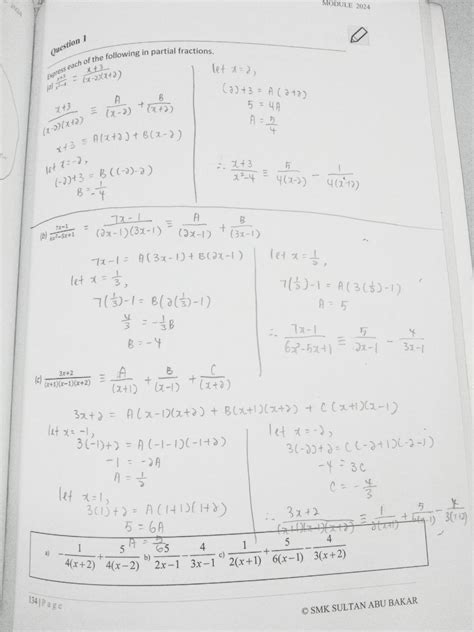 MODULE 2024
Question 1
Express each of the following in partial fractions.
(a) (x+3)/(x²-4) = (x+3)/((x-2)(x+2))
(x+3)/((x-2)(x+2)) ≡ A/(x-2) + B/(x+2)
x+3 ≡ A(x+2) + B(x-2)
let x=-2,
(-2)+3 = B((-2)-2)
B = -1/4
let x=2,
(2)+3 = A(2+2)
5 = 4A
A = 5/4
∴ (x+3)/(x²-4) ≡ 5/(4(x-2)) - 1/(4(x+2))
(b) (7x-1)/(6x²-5x+1) = (7x-1)/((2x-1)(3x-1)) ≡ A/(2x-1) + B/(3x-1)
7x-1 = A(3x-1) + B(2x-1)
let x = 1/3,
7(1/3)-1 = B(2(1/3)-1)
4/3 = -1/3 B
B = -4
let x = 1/2,
7(1/2)-1 = A(3(1/2)-1)
A = 5
∴ (7x-1)/(6x²-5x+1) ≡ 5/(2x-1) - 4/(3x-1)
(c) (3x+2)/((x+1)(x-1)(x+2)) ≡ A/(x+1) + B/(x-1) + C/(x+2)
3x+2 = A(x-1)(x+2) + B(x+1)(x+2) + C(x+1)(x-1)
let x=-1,
3(-1)+2 = A(-1-1)(-1+2)
-1 = -2A
A = 1/2
let x=1,
3(1)+2 = A(1+1)(1+2)
5 = 6A
A = 5/6
let x=-2,
3(-2)+2 = C(-2+1)(-2-1)
-4 = 3C
C = -4/3
∴ (3x+2)/((x+1)(x-1)(x+2)) ≡ 1/(2(x+1)) + 5/(6(x-1)) - 4/(3(x+2))
a) -1/(4(x+2)) + 5/(4(x-2)) b) 5/(2x-1) - 4/(3x-1) c) 1/(2(x+1)) + 5/(6(x-1)) - 4/(3(x+2))
134 | Page
© SMK SULTAN ABU BAKAR